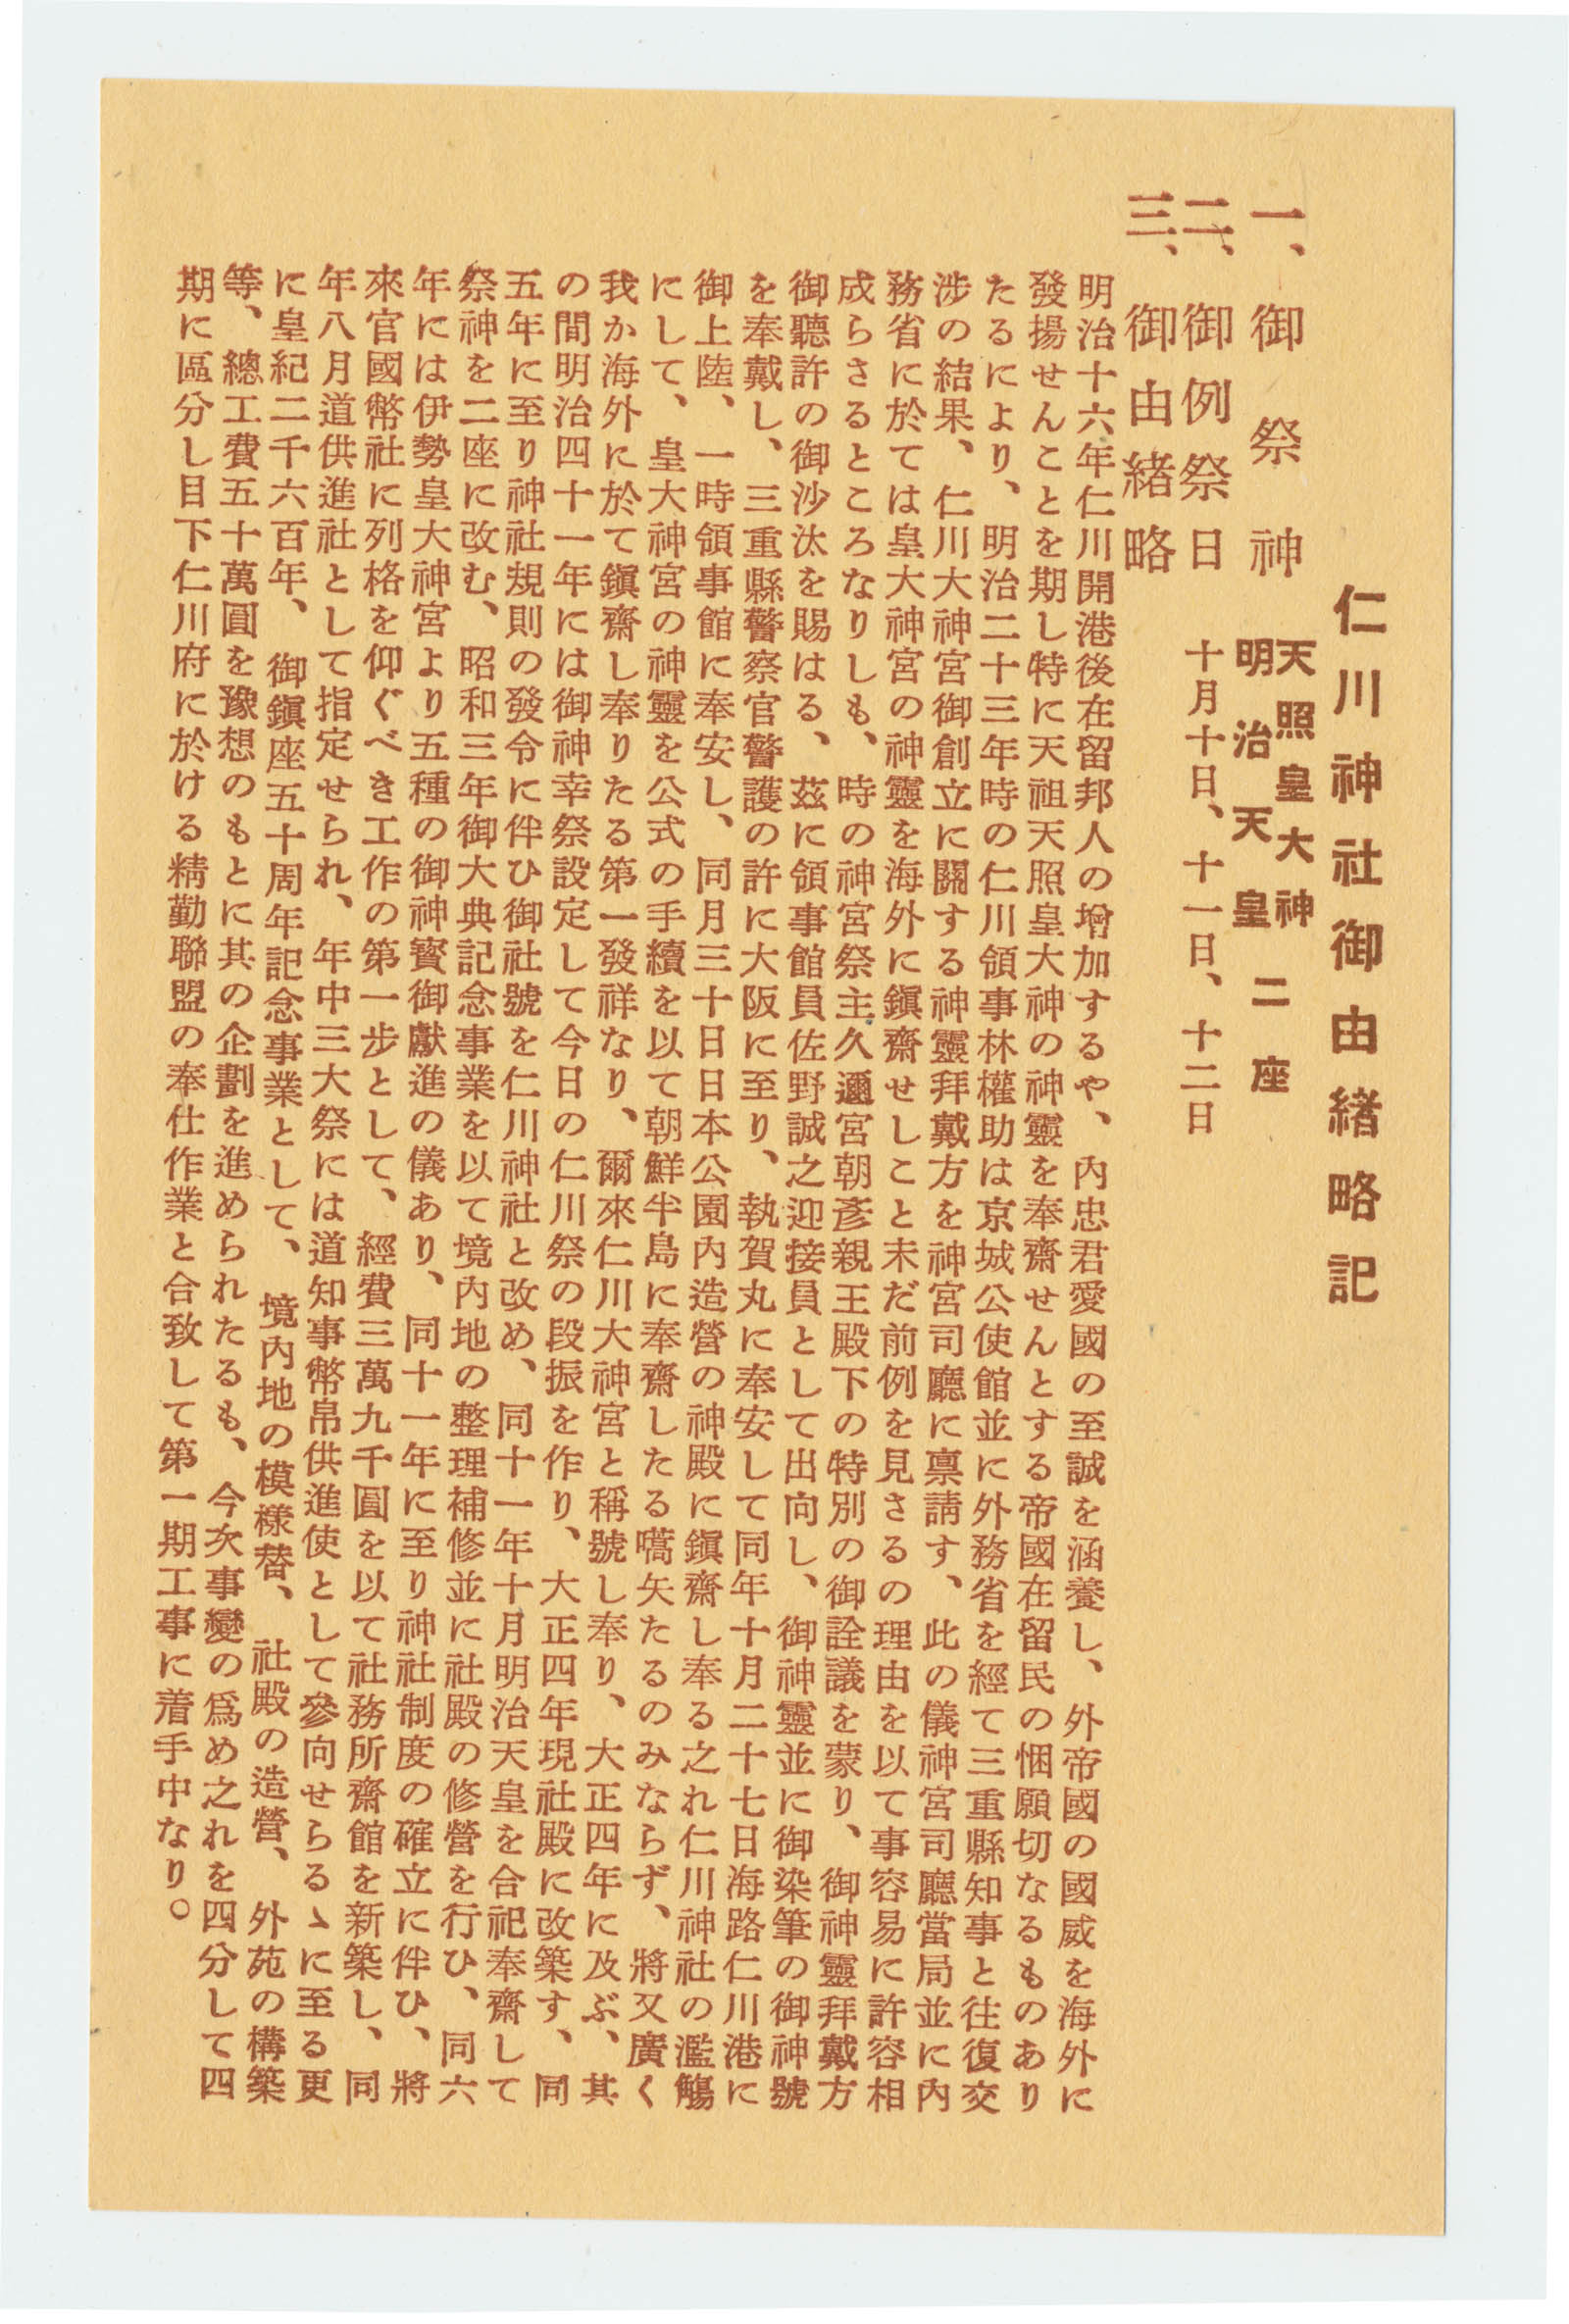 仁川神社御由緒略記
一、御祭神　天照皇大神　明治天皇　二座
二、御例祭日　十月十日、十一日、十二日
三、御由緒略
明治十六年仁川開港後在留邦人の增加するや、內忠君愛國の至誠を涵養し、外帝國の國威を海外に
發揚せんことを期し特に天祖天照皇大神の神靈を奉齋せんとする帝國在留民の悃願切なるものあり
たるにより、明治二十三年時の仁川領事林權助は京城公使館並に外務省を經て三重縣知事と往復交
涉の結果、仁川大神宮御創立に關する神靈拜戴方を神宮司廳に稟請す、此の儀神宮司廳當局並に內
務省に於ては皇大神宮の神靈を海外に鎭齋せしこと未だ前例を見さるの理由を以て事容易に許容相
成らさるところなりしも、時の神宮祭主久邇宮朝彥親王殿下の特別の御詮議を蒙り、御神靈拜戴方
御聽許の御沙汰を賜はる、茲に領事館員佐野誠之迎接員として出向し、御神靈並に御染筆の御神號
を奉戴し、三重縣警察官警護の許に大阪に至り、執賀丸に奉安して同年十月二十七日海路仁川港に
御上陸、一時領事館に奉安し、同月三十日日本公園內造營の神殿に鎭齋し奉る之れ仁川神社の濫觴
にして、皇大神宮の神靈を公式の手續を以て朝鮮半島に奉齋したる嚆矢たるのみならず、將又廣く
我か海外に於て鎭齋し奉りたる第一發祥なり、爾來仁川大神宮と稱號し奉り、大正四年に及ぶ、其
の間明治四十一年には御神幸祭設定して今日の仁川祭の段振を作り、大正四年現社殿に改築す、同
五年に至り神社規則の發令に伴ひ御社號を仁川神社と改め、同十一年十月明治天皇を合祀奉齋して
祭神を二座に改む、昭和三年御大典記念事業を以て境內地の整理補修並に社殿の修營を行ひ、同六
年には伊勢皇大神宮より五種の御神寳御獻進の儀あり、同十一年に至り神社制度の確立に伴ひ、將
來官國幣社に列格を仰ぐべき工作の第一步として、經費三萬九千圓を以て社務所齋館を新築し、同
年八月道供進社として指定せられ、年中三大祭には道知事幣帛供進使として參向せらるゝに至る更
に皇紀二千六百年、御鎭座五十周年記念事業として、境內地の模樣替、社殿の造營、外苑の構築
等、總工費五十萬圓を豫想のもとに其の企劃を進められたるも、今次事變の爲め之れを四分して四
期に區分し目下仁川府に於ける精勤聯盟の奉仕作業と合致して第一期工事に着手中なり。